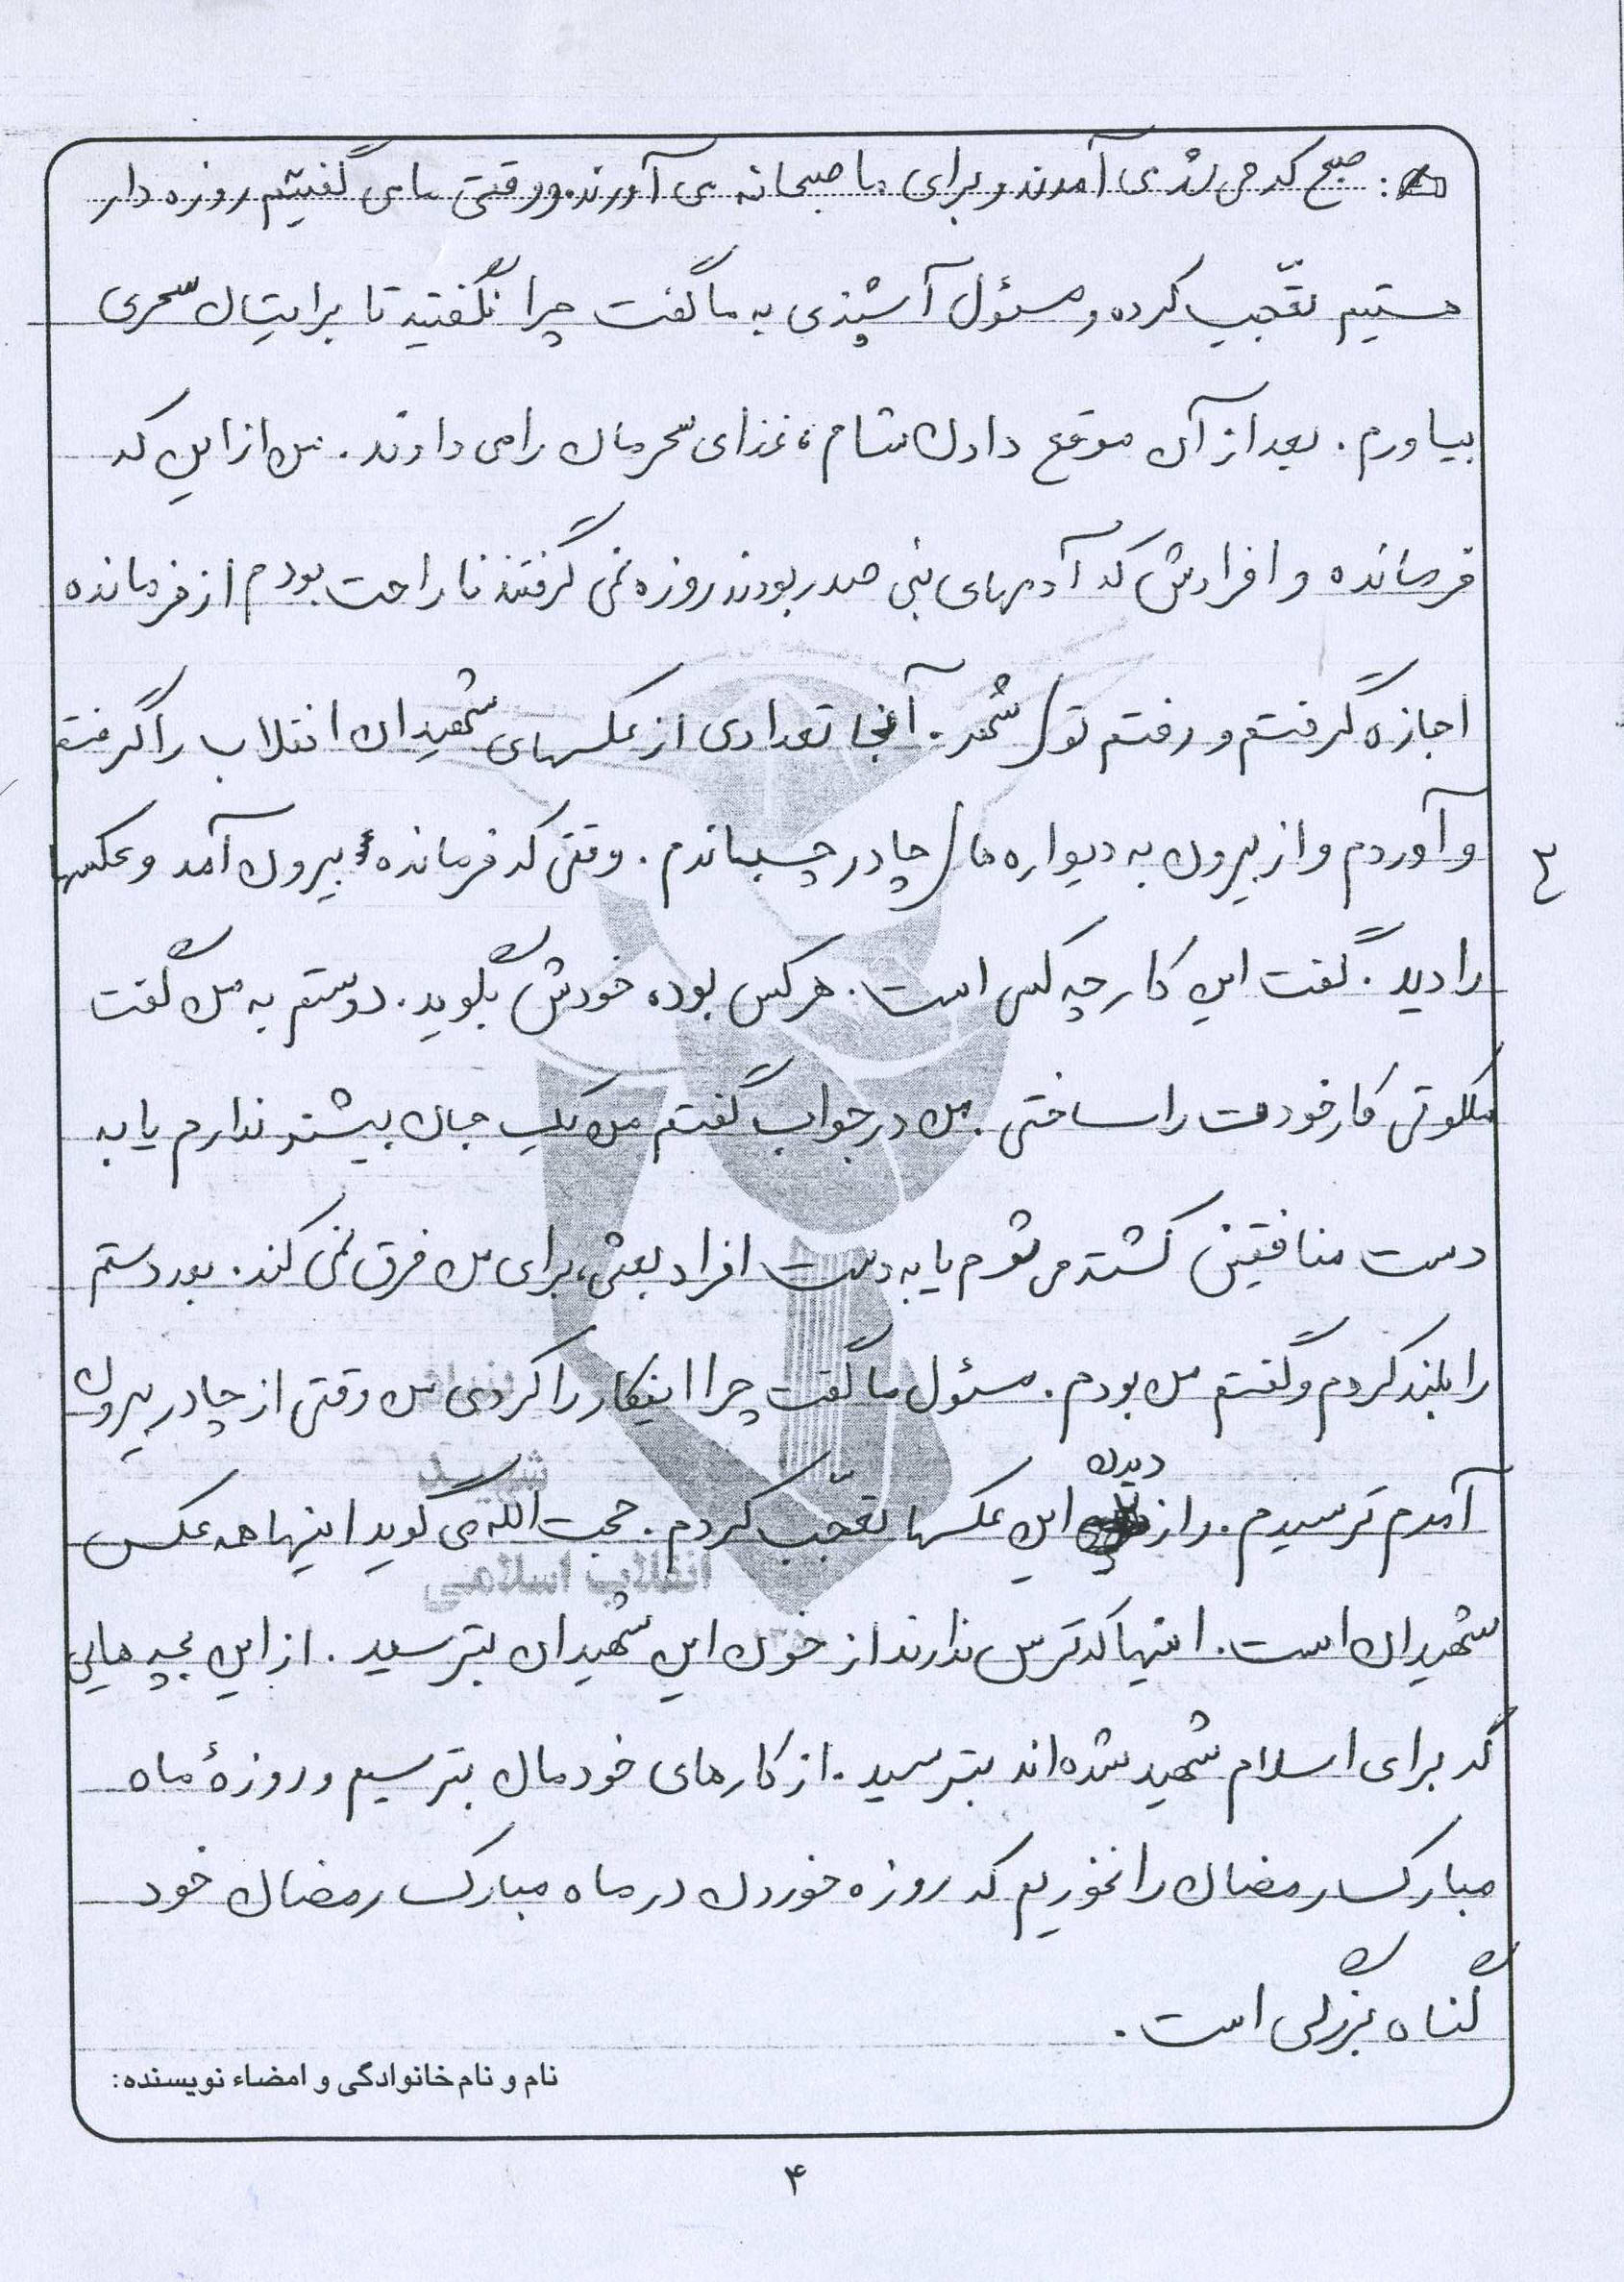 صبح که می شد می آمدند و برای ما صبحانه می آوردند. و وقتی ما می گفتیم روزه دار
هستیم تعّجب کرده و مسئول آشپزی به ما گفت چرا نگفتید تا برایتان سحری
بیاورم. بعد از آن موقع دادن شام، غذای سحرمان را می دادند. من از این که
فرمانده و افرادش که آدمهای بنی صدر بودند روزه نمی گرفتند ناراحت بودم از فرمانده
اجازه گرفتم و رفتم توی شهر. آنجا تعدادی از عکسهای شهیدان انقلاب را گرفتم
و آوردم و از بیرون به دیواره های چادر چسباندم. وقتی که فرمانده بیرون آمد و عکسها
۴
را دید. گفت این کار چه کسی است. هر کس بوده خودش بگوید. دوستم به من گفت
ملکوتی کار خودت را ساختی. من در جواب گفتم من یک جان بیشتر ندارم یا به
دست منافقین کشته می شوم یا به دست افراد بعثی، برای من فرق نمی کند. بعد دستم
را بلند کردم و گفتم من بودم. مسئول ما گفت چرا اینکار را کردی من وقتی از چادر بیرون
آمدم ترسیدم. و از دیدن این عکسها تعّجب کردم. حجت الله می گوید اینها همه عکس
شهیدان است. اینها که ترس ندارند از خون این شهیدان بترسید. از این بچه هایی
که برای اسلام شهید شده اند بترسید. از کارهای خودمان بترسیم و روزهٔ ماه
مبارک رمضان را نخوریم که روزه خوردن در ماه مبارک رمضان خود
گناه بزرگی است.
نام و نام خانوادگی و امضاء نویسنده:
شهید
انقلاب اسلامی
۴